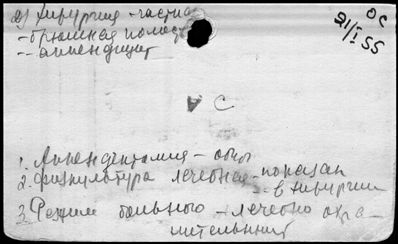 а) Хирургия - частна
- брюшная полос
- аппендицит
ОС
21/I 55
С
1. Аппендэктомия -
2. Физкультура лечебная - показан
- в хирургии
3. Режим больного - лечебно охра-
нительный